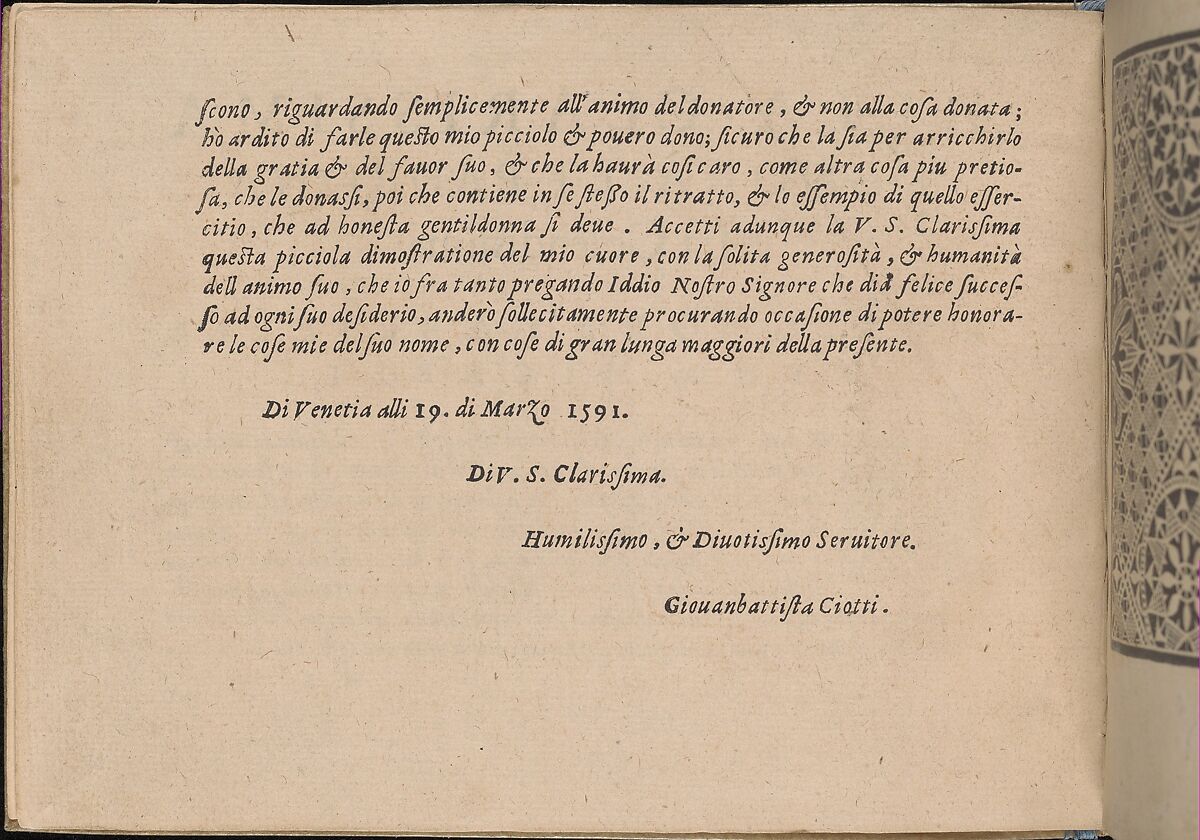 ſcono, riguardando ſemplicemente all'animo del donatore, & non alla coſa donata;
hò ardito di farle queſto mio picciolo & pouero dono; ſicuro che la ſia per arricchirlo
della gratia & del fauor ſuo, & che la haurà coſi caro, come altra coſa piu pretio-
ſa, che le donaſſi, poi che contiene in ſe ſteſſo il ritratto, & lo eſſempio di quello eſſer-
citio, che ad honeſta gentildonna ſi deue. Accetti adunque la V. S. Clariſſima
queſta picciola dimoſtratione del mio cuore, con la ſolita generoſità, & humanità
dell animo ſuo, che io fra tanto pregando Iddio Noſtro Signore che dia felice ſucceſ-
ſo ad ogni ſuo deſiderio, anderò ſollecitamente procurando occaſione di potere honora-
re le coſe mie del ſuo nome, con coſe di gran lunga maggiori della preſente.
Di Venetia alli 19. di Marzo 1591.
Di V. S. Clariſſima.
Humiliſſimo, & Diuotiſſimo Seruitore.
Giouanbattiſta Ciotti.